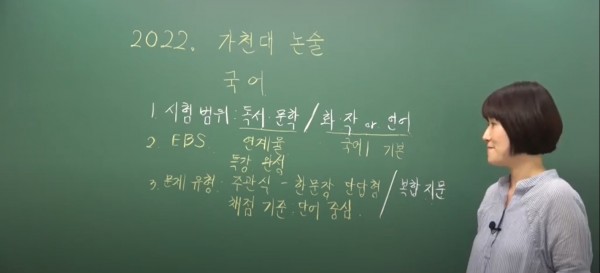 2022. 가천대 논술
국어
1. 시험 범위 : 독서·문학 / 화·작 or 언어
2. EBS 연계율 국어 기본
특강 완성
3. 문제 유형 : 주관식 - 한문장 단답형 / 복합 지문
채점 기준. 단어 중심.